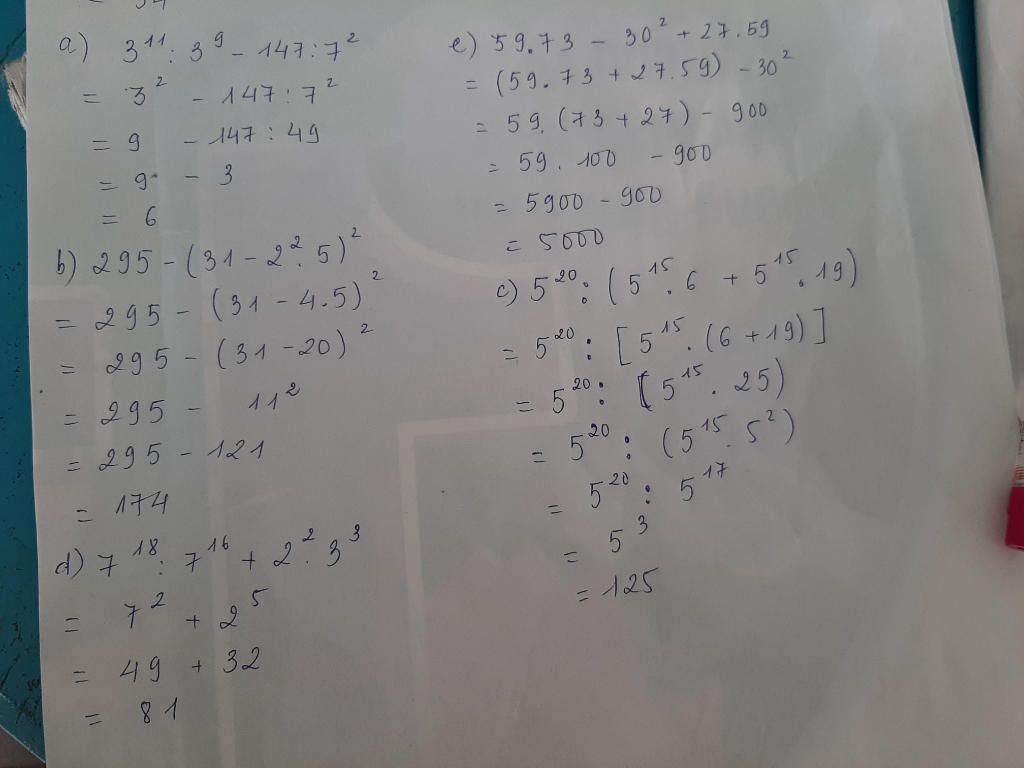 a) 3¹¹ : 3⁹ - 147 : 7²
= 3² - 147 : 7²
= 9 - 147 : 49
= 9 - 3
= 6
b) 295 - (31 - 2² . 5)²
= 295 - (31 - 4.5)²
= 295 - (31 - 20)²
= 295 - 11²
= 295 - 121
= 174
d) 7¹⁸ : 7¹⁶ + 2² . 3³
= 7² + 2⁵
= 49 + 32
= 81
e) 59.73 - 30² + 27.59
= (59.73 + 27.59) - 30²
= 59. (73 + 27) - 900
= 59. 100 - 900
= 5900 - 900
= 5000
c) 5²⁰ : (5¹⁵ . 6 + 5¹⁵ . 19)
= 5²⁰ : [5¹⁵ . (6 + 19)]
= 5²⁰ : (5¹⁵ . 25)
= 5²⁰ : (5¹⁵ . 5²)
= 5²⁰ : 5¹⁷
= 5³
= 125